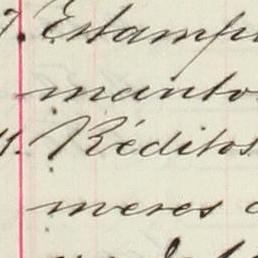 7. Estamp
manto
Réditos
meses